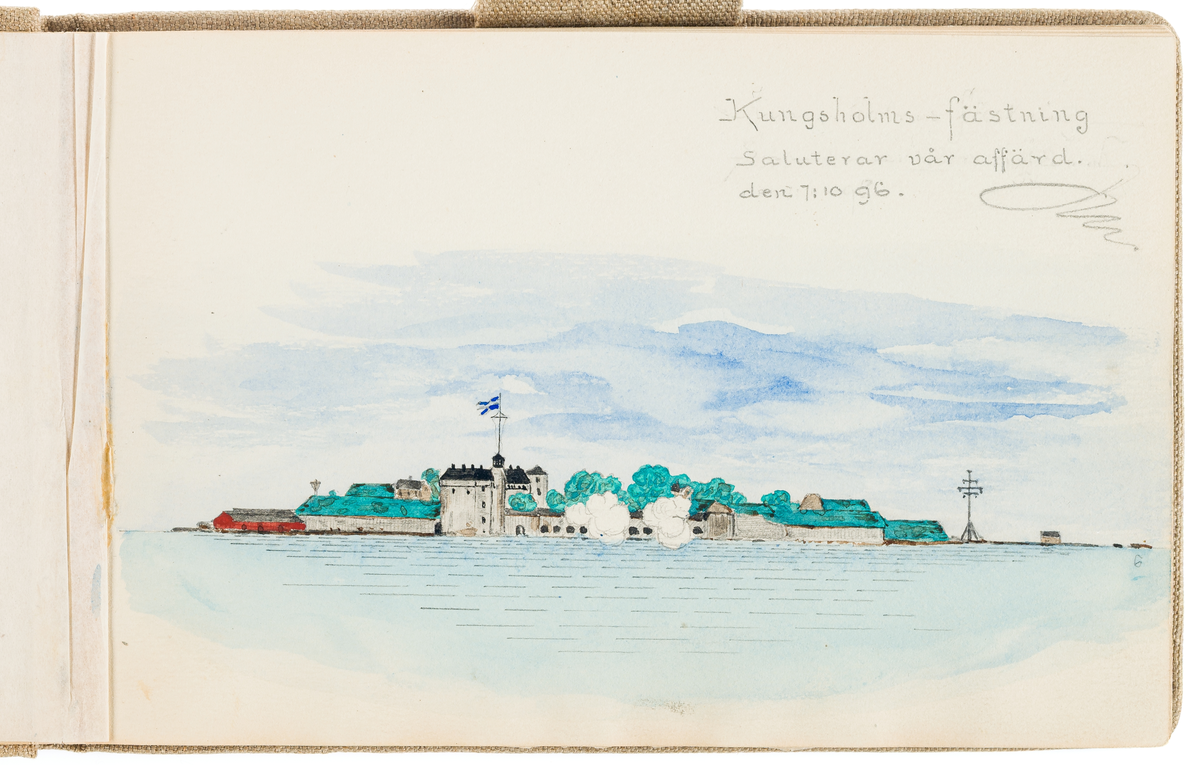 Kungsholms-fästning
Saluterar vår affärd.
den 7:10 96.
6